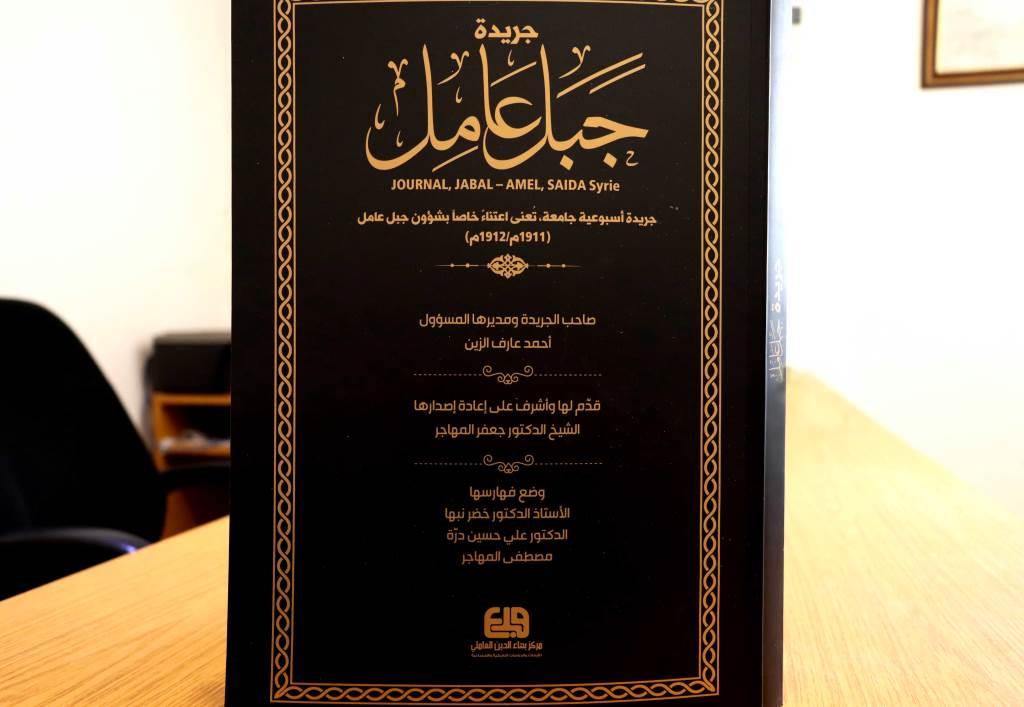 جريدة
جَبَل عَامِل
JOURNAL, JABAL – AMEL, SAIDA Syrie
جريدة أسبوعية جامعة، تُعنى اعتناءً خاصاً بشؤون جبل عامل
(1911م/1912م)
صاحب الجريدة ومديرها المسؤول
أحمد عارف الزين
قدّم لها وأشرف على إعادة إصدارها
الشيخ الدكتور جعفر المهاجر
وضع فهارسها
الأستاذ الدكتور خضر نبها
الدكتور علي حسين درّة
مصطفى المهاجر
مركز بهاء الدين العاملي
جريدة جبل عامل